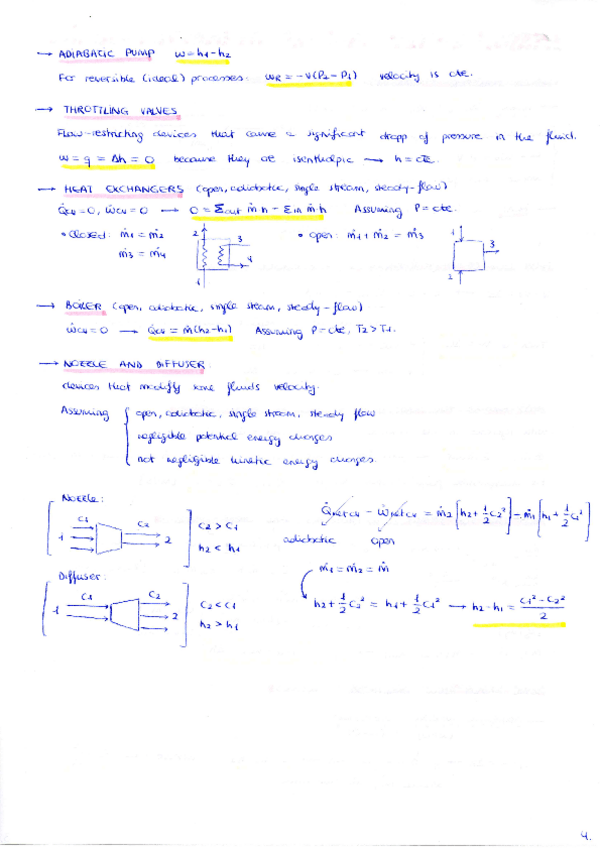 → ADIABATIC PUMP w=h1-h2
For reversible (ideal) processes: wR = -v(P2-P1) velocity is cte.
→ THROTTLING VALVES
Flow-restricting devices that cause a significant dropp of pressure in the fluid.
w = q = Δh = 0 because they are isenthalpic → h = cte.
→ HEAT EXCHANGERS (open, adiabatic, single stream, steady-flow)
Q̇cv = 0, Ẇcv = 0 → 0 = Σout ṁ h - Σin ṁ h Assuming P = cte.
• Closed: ṁ1 = ṁ2
ṁ3 = ṁ4
2 3 4 1
• Open: ṁ1 + ṁ2 = ṁ3
1 3 2
→ BOILER (open, adiabatic, single stream, steady-flow)
Ẇcv = 0 → Q̇cv = ṁ(h2-h1) Assuming P = cte, T2 > T1.
→ NOZZLE AND DIFFUSER
devices that modify some fluids velocity.
Assuming { open, adiabatic, single stream, steady flow
negligible potential energy changes
not negligible kinetic energy changes
Nozzle:
1 C1 C2 2
C2 > C1
h2 < h1
Diffuser:
1 C1 C2 2
C2 < C1
h2 > h1
Q̇net cv - Ẇnet cv = ṁ2 [h2 + 1/2 C2²] - ṁ1 [h1 + 1/2 C1²]
adiabatic open
ṁ1 = ṁ2 = ṁ
h2 + 1/2 C2² = h1 + 1/2 C1² → h2 - h1 = (C1² - C2²)/2
4.